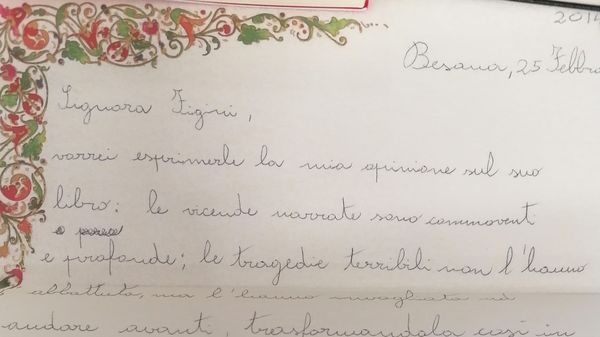 2014
Besana, 25 Febbra
Signora Figini,
vorrei esprimerle la mia opinione sul suo
libro: le vicende narrate sono commoventi
e profonde; le tragedie terribili non l'hanno
abbattuta, ma l'hanno invogliata ad
andare avanti, trasformandola così in